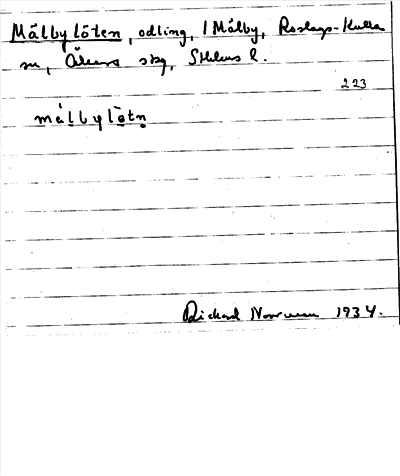 Målbylöten, odling, 1 Målby, Roslags-Kulla
sn, Åkers skg, Sthlms l.
223
målbylötn
Richard Norrman 1934.